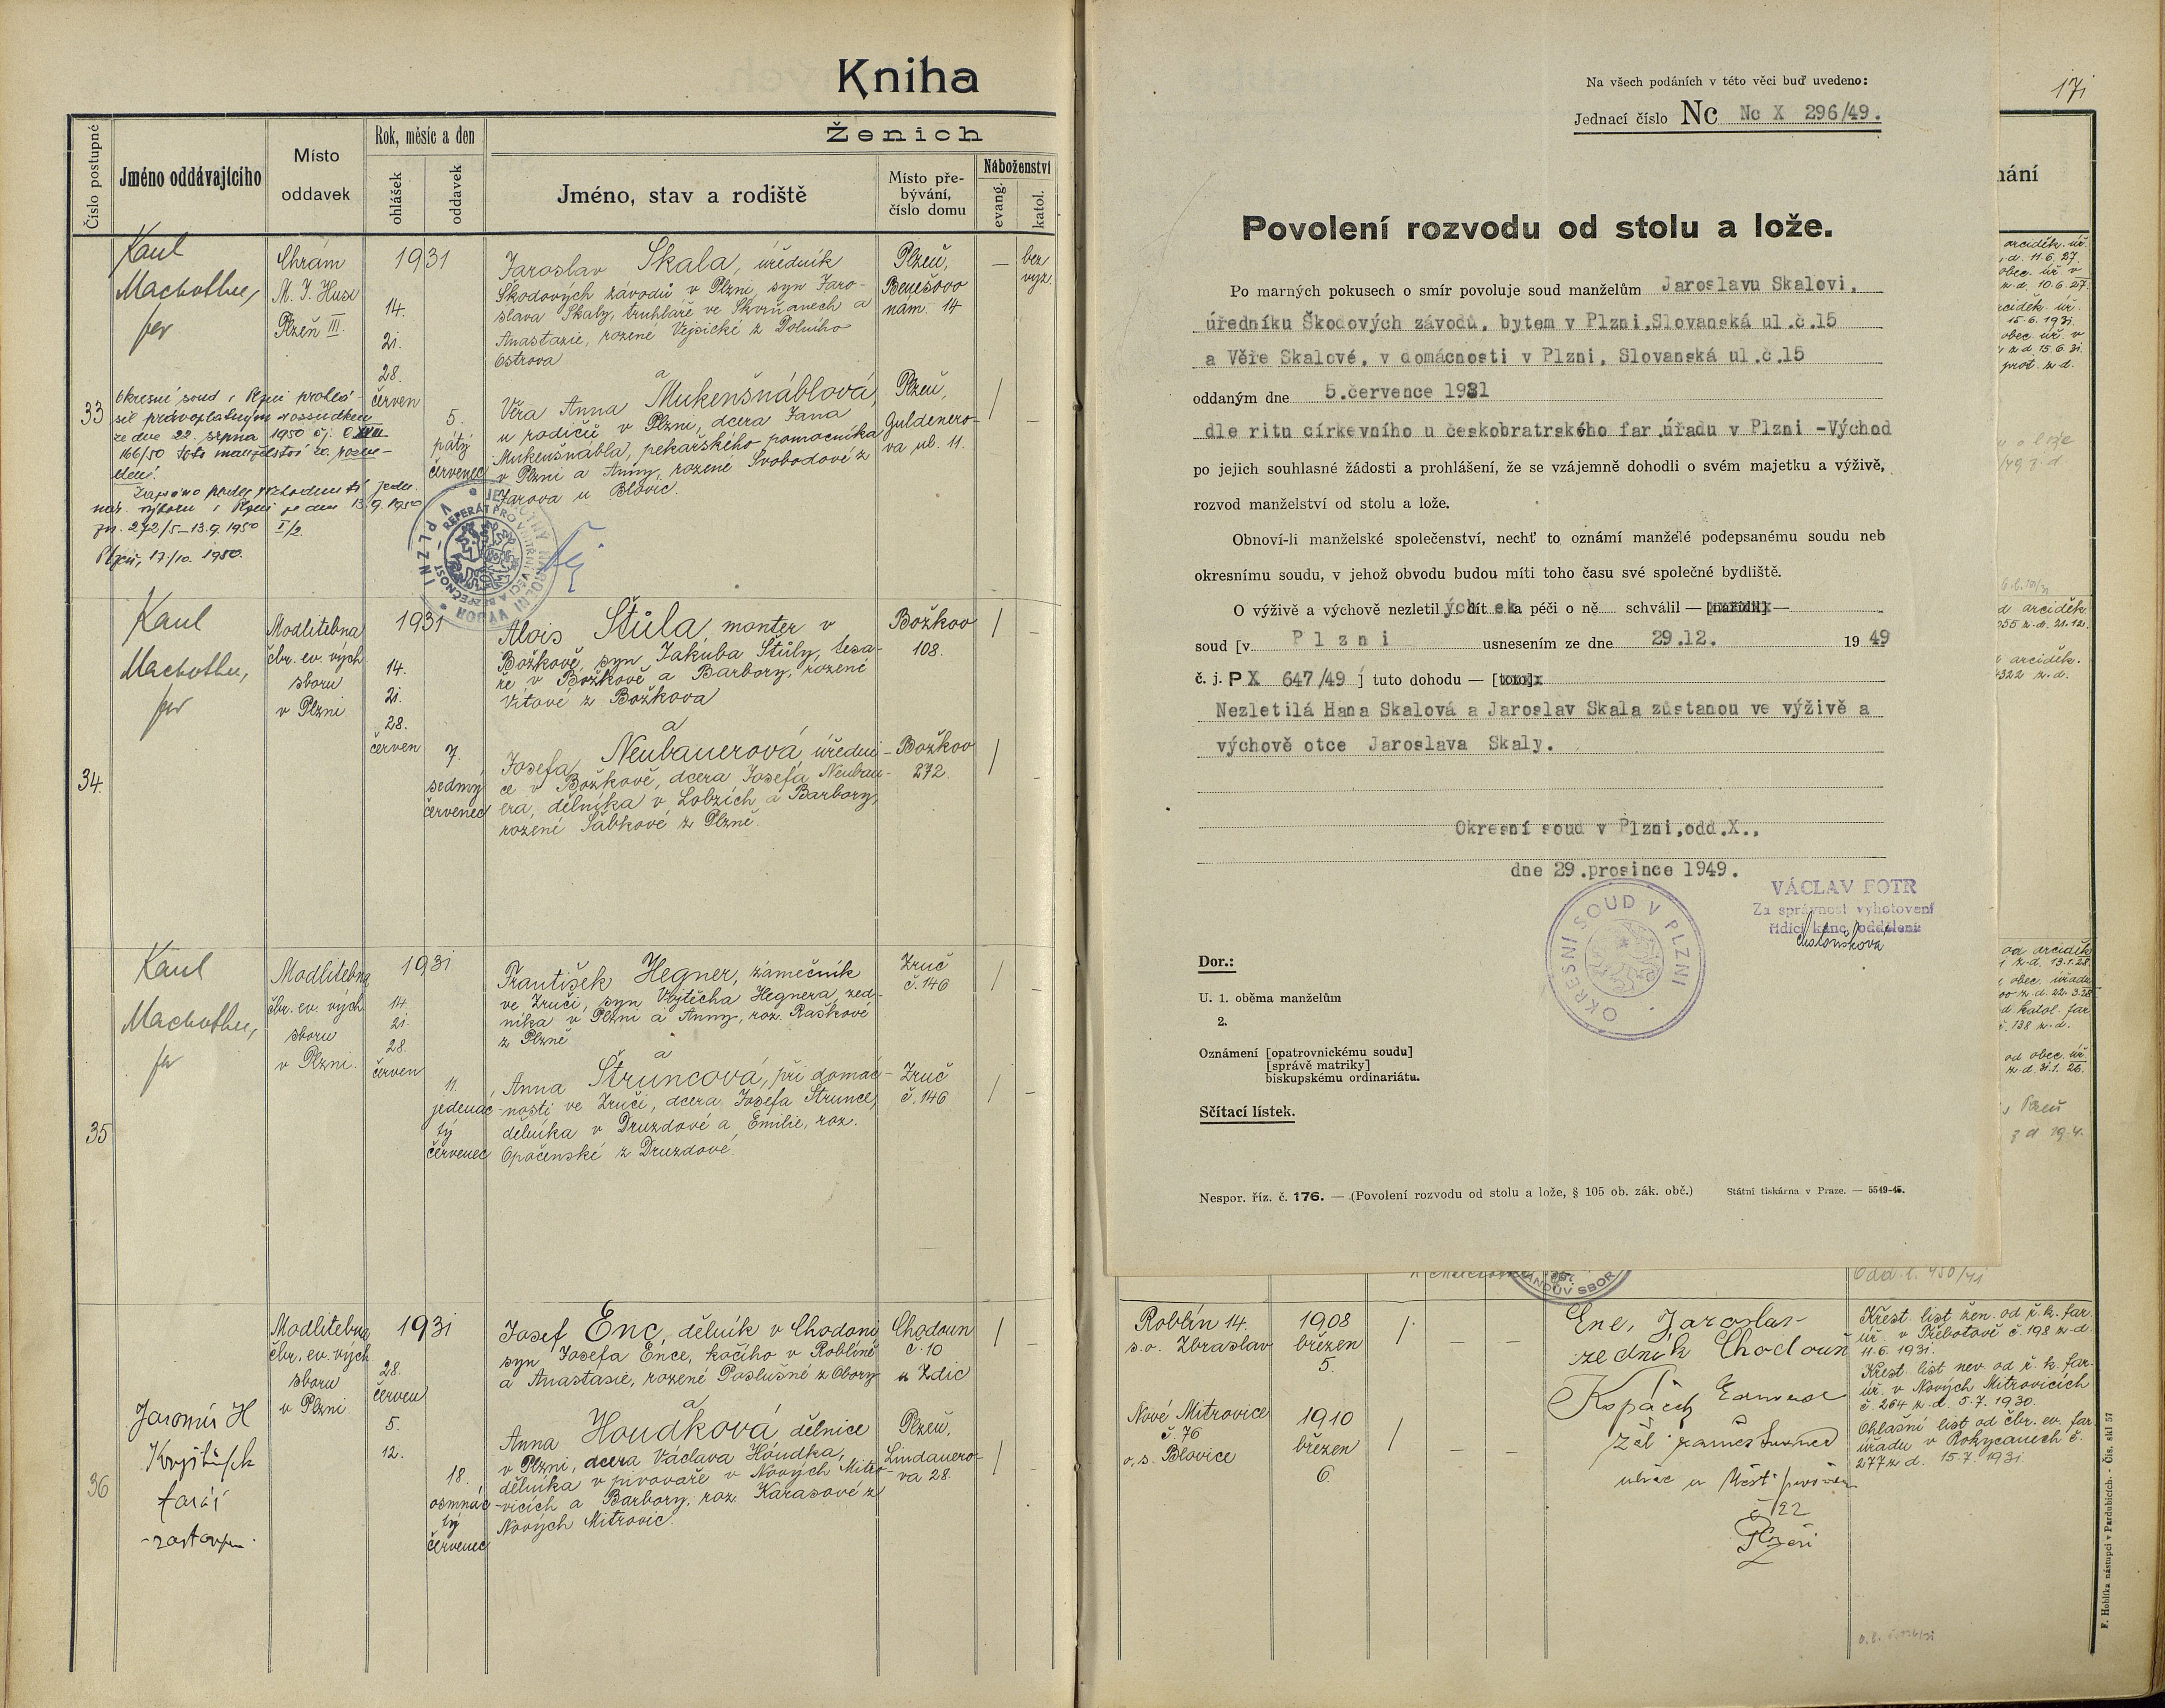 Kniha
Ženich
Číslo postupné
Jméno oddávajícího
Místo
oddavek
Rok, měsíc a den
ohlášek
oddavek
Jméno, stav a rodiště
Místo pře-
bývání,
číslo domu
Náboženství
evang.
katol.
33
Karel
Machotka,
far
Chrám
M. J. Husi
Plzeň III.
1931
14.
21.
28.
červen
5.
pátý
červenec
Jaroslav Skala, úředník
Škodových závodů v Plzni, syn Jaro-
slava Skaly, truhláře ve Skvrňanech a
Anastazie, rozené Vejsické z Dolního
Ostrova
Plzeň,
Benešovo
nám. 14
—
bez
vyz.
a
Věra Anna Mukenšnáblová,
u rodičů v Plzni, dcera Jana
Mukenšnábla, pekařského pomocníka
v Plzni a Anny, rozené Svobodové z
Jarova u Blovic.
Plzeň,
Guldenero-
va ul. 11.
/
—
Okresní soud v Plzni prohlá-
sil právoplatným rozsudkem
ze dne 22. srpna 1950 čj. C XVII
166/50 toto manželství za rozve-
dené.
Zapsáno podle rozhodnutí jedn.
nár. výboru v Plzni ze dne 13.9.1950
zn. 272/5-13.9.1950 I/2.
Plzeň, 17./10. 1950.
34.
Karel
Machotka,
far
Modlitebna
čbr. ev. vých
sboru
v Plzni
1931
14.
21.
28.
červen
7.
sedmý
červenec
Alois Štůla, montér v
Božkově, syn Jakuba Štůly, tesa-
ře v Božkově a Barbory, rozené
Vítové z Božkova
Božkov
108.
/
—
a
Josefa Neubauerová, úředni-
ce v Božkově, dcera Josefa Neubau-
era, dělníka v Lobzích a Barbory,
rozené Šabkové z Plzně.
Božkov
272.
/
—
35
Karel
Machotka,
far
Modlitebna
čbr. ev. vých
sboru
v Plzni.
1931
14.
21.
28.
červen
11.
jedenác-
tý
červenec
František Hegner, zámečník
ve Zruči, syn Vojtěcha Hegnera, zed-
níka v Plzni a Anny, roz. Raškové
z Plzně
Zruč
č. 146
/
—
a
Anna Štruncová, při domác-
nosti ve Zruči, dcera Josefa Štrunce,
dělníka v Druzdové a Emilie, roz.
Opočenské z Druzdové.
Zruč
č. 146
/
—
36
Jaromír H
farář
zástupce
Modlitebna
čbr. ev. vých
sboru
v Plzni.
1931
28.
červen
5.
12.
18.
osmnác-
tý
červenec
Josef Enc, dělník v Chodouni
syn Josefa Ence, kočího v Roblíně
a Anastasie, rozené Poslušné z Obory
Chodoun
č. 10
u Zdic
/
a
Anna Houdková, dělnice
v Plzni, dcera Václava Houdka,
dělníka v pivovaře v Nových Mitro-
vicích a Barbory, roz. Karasové z
Nových Mitrovic.
Plzeň,
Lindauero-
va 28.
/
—
171
Na všech podáních v této věci buď uvedeno:
Jednací číslo Nc Nc X 296/49.
Povolení rozvodu od stolu a lože.
Po marných pokusech o smír povoluje soud manželům Jaroslavu Skalovi,
úředníku Škodových závodů, bytem v Plzni,Slovanská ul.č.15
a Věře Skalové, v domácnosti v Plzni, Slovanská ul.č.15
oddaným dne 5.července 1931
dle ritu církevního u českobratrského far.úřadu v Plzni -Východ
po jejich souhlasné žádosti a prohlášení, že se vzájemně dohodli o svém majetku a výživě,
rozvod manželství od stolu a lože.
Obnoví-li manželské společenství, nechť to oznámí manželé podepsanému soudu neb
okresnímu soudu, v jehož obvodu budou míti toho času své společné bydliště.
O výživě a výchově nezletilých dítek a péči o ně schválil — [nařídil] —
soud [v Plzni usnesením ze dne 29.12. 1949
č. j. P X 647/49 ] tuto dohodu — [toto]
Nezletilá Hana Skalová a Jaroslav Skala zůstanou ve výživě a
výchově otce Jaroslava Skaly.
Okresní soud v Plzni,odd.X.,
dne 29.prosince 1949.
OKRESNÍ SOUD V PLZNI
VÁCLAV FOTR
Za správnost vyhotovení
řídící kanc. oddělení
Dor.:
U. 1. oběma manželům
2.
Oznámení [opatrovnickému soudu]
[správě matriky]
biskupskému ordinariátu.
Sčítací lístek.
Nespor. říz. č. 176. — (Povolení rozvodu od stolu a lože, § 105 ob. zák. obč.) Státní tiskárna v Praze. — 5549-45.
Roblín 14.
s.o. Zbraslav
1908
březen
5.
/
—
—
Enc, Jaroslav
zedník Chodouň
Křest. list žen. od ř. k. far.
úř. v Třebotově č. 198 z d.
11.6. 1931.
Nové Mitrovice
č. 76
o.s. Blovice
1910
březen
6.
/
—
—
Křest. list nev. od ř. k. far.
úř. v Nových Mitrovicích
č. 264 z d. 5.7. 1930.
Ohlašní list od čbr. ev. far.
úřadu v Rokycanech č.
277 z d. 15.7. 1931.
č 22
Plzeň
F. Hoblíka nástupci v Pardubicích. - Čís. skl. 57